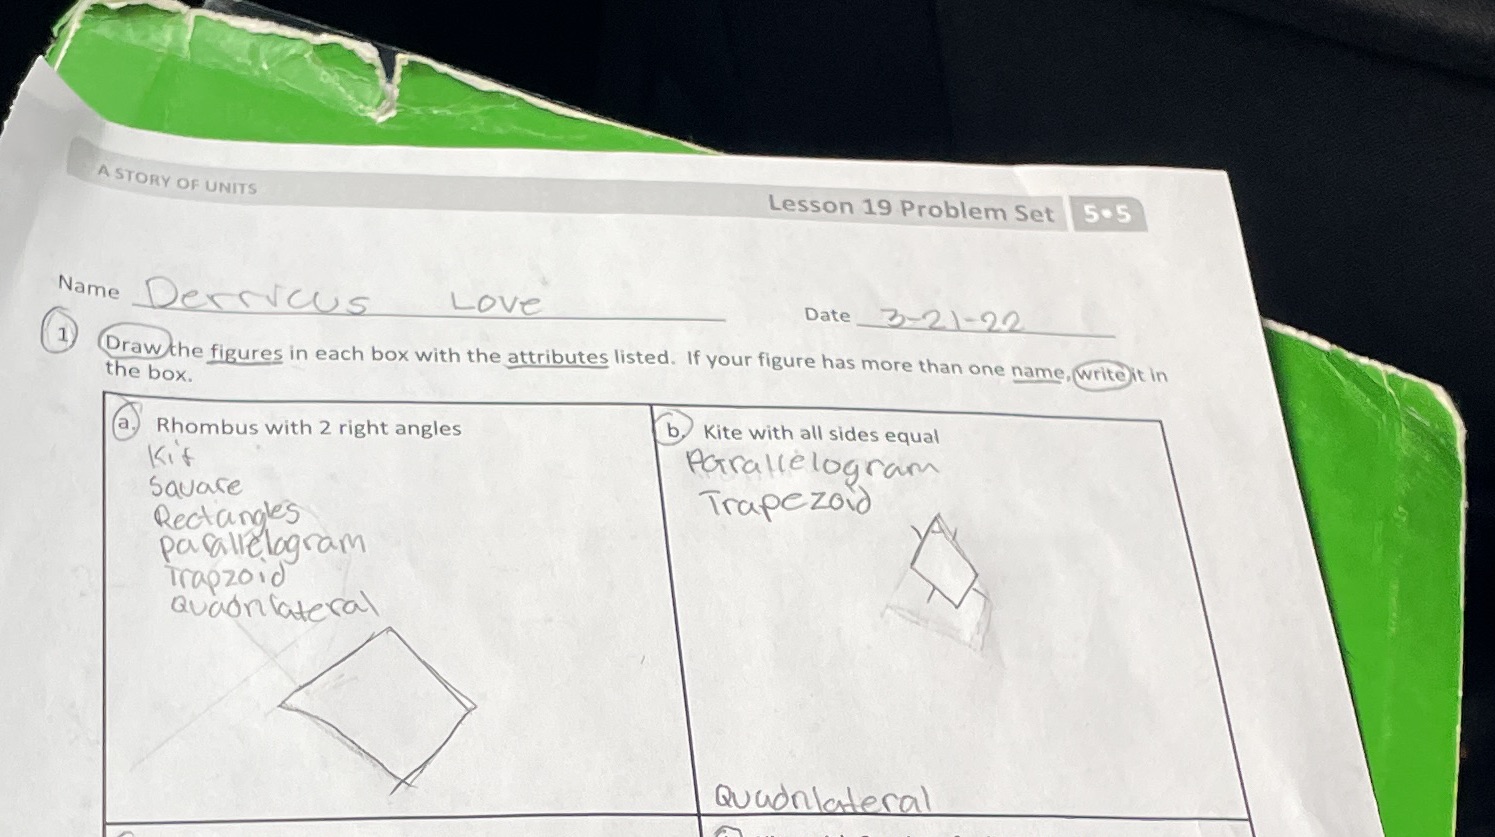 A STORY OF UNITS
Lesson 19 Problem Set 5•5
Name Derricus Love
Date 3-21-22
1. Draw the figures in each box with the attributes listed. If your figure has more than one name, write it in
the box.
a. Rhombus with 2 right angles
Kit
Square
Rectangles
parallelogram
Trapzoid
Quadrilateral
b. Kite with all sides equal
Parallelogram
Trapezoid
Quadrilateral